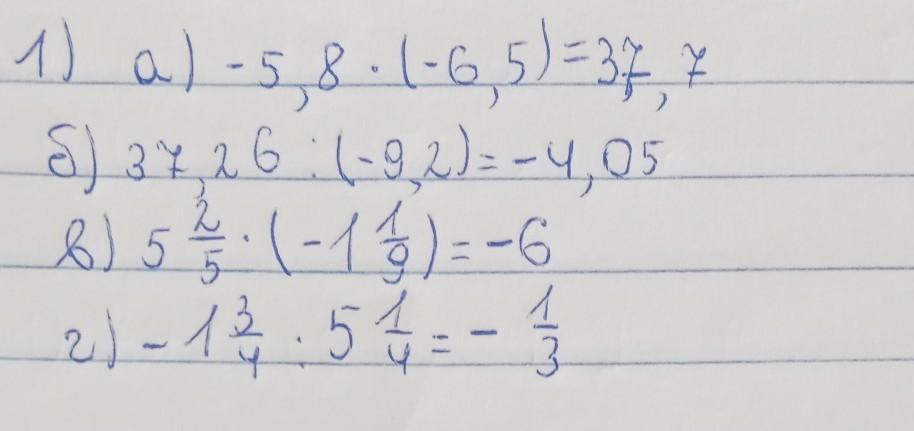 1) а) -5,8 · (-6,5) = 37,7
б) 37,26 : (-9,2) = -4,05
в) 5 2/5 · (-1 1/9) = -6
г) -1 3/4 : 5 1/4 = - 1/3